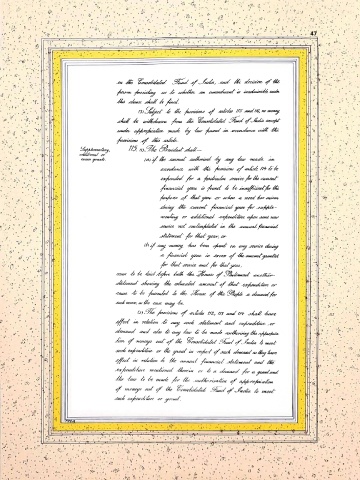 47
on the Consolidated Fund of India, and the decision of the
person presiding as to whether an amendment is inadmissible under
this clause shall be final.
(3) Subject to the provisions of articles 115 and 116, no money
shall be withdrawn from the Consolidated Fund of India except
under appropriation made by law passed in accordance with the
provisions of this article.
Supplementary,
additional or
excess grants.
115. (1) The President shall—
(a) if the amount authorised by any law made in
accordance with the provisions of article 114 to be
expended for a particular service for the current
financial year is found to be insufficient for the
purposes of that year or when a need has arisen
during the current financial year for supple-
mentary or additional expenditure upon some new
service not contemplated in the annual financial
statement for that year, or
(b) if any money has been spent on any service during
a financial year in excess of the amount granted
for that service and for that year,
cause to be laid before both the Houses of Parliament another
statement showing the estimated amount of that expenditure or
cause to be presented to the House of the People a demand for
such excess, as the case may be.
(2) The provisions of articles 112, 113 and 114 shall have
effect in relation to any such statement and expenditure or
demand and also to any law to be made authorising the appropria-
tion of moneys out of the Consolidated Fund of India to meet
such expenditure or the grant in respect of such demand as they have
effect in relation to the annual financial statement and the
expenditure mentioned therein or to a demand for a grant and
the law to be made for the authorisation of appropriation
of moneys out of the Consolidated Fund of India to meet
such expenditure or grant.